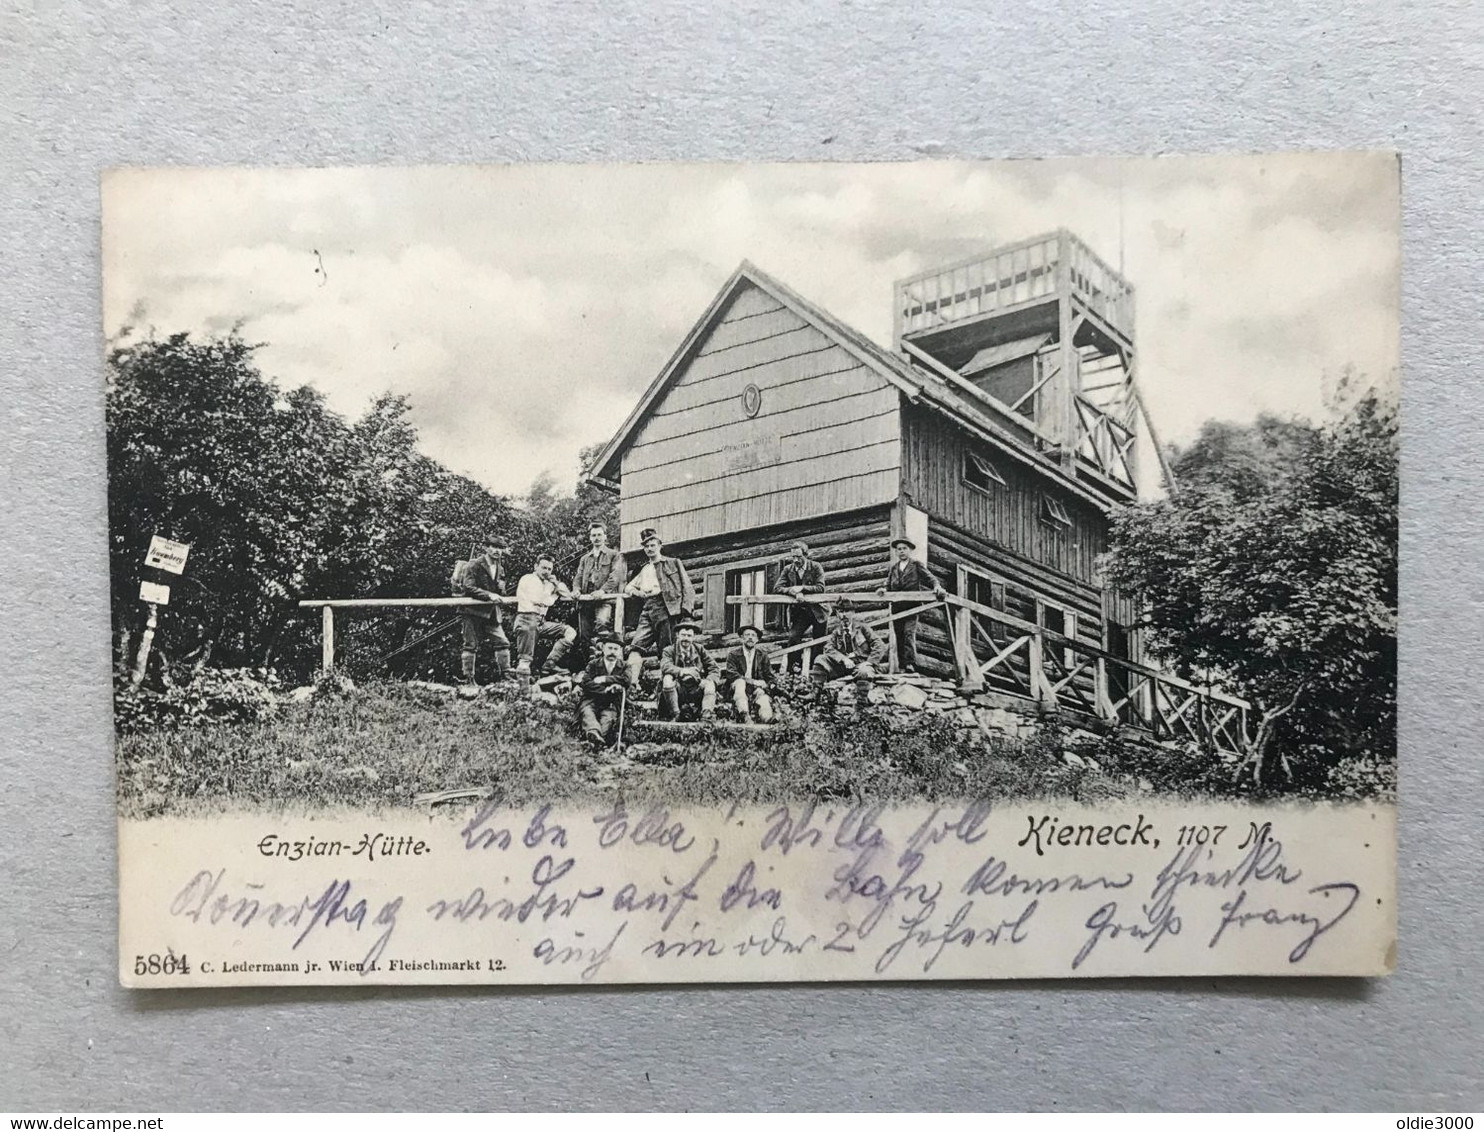 Kaumberg
ENZIAN-HÜTTE
Enzian-Hütte.
Kieneck, 1107 M.
Liebe Ella! Willi soll
Donnerstag wieder auf die Bahn komen schicke
auch ein oder 2 Heferl Gruß Franz
5864 C. Ledermann jr. Wien I. Fleischmarkt 12.
oldie3000
delcampe.net